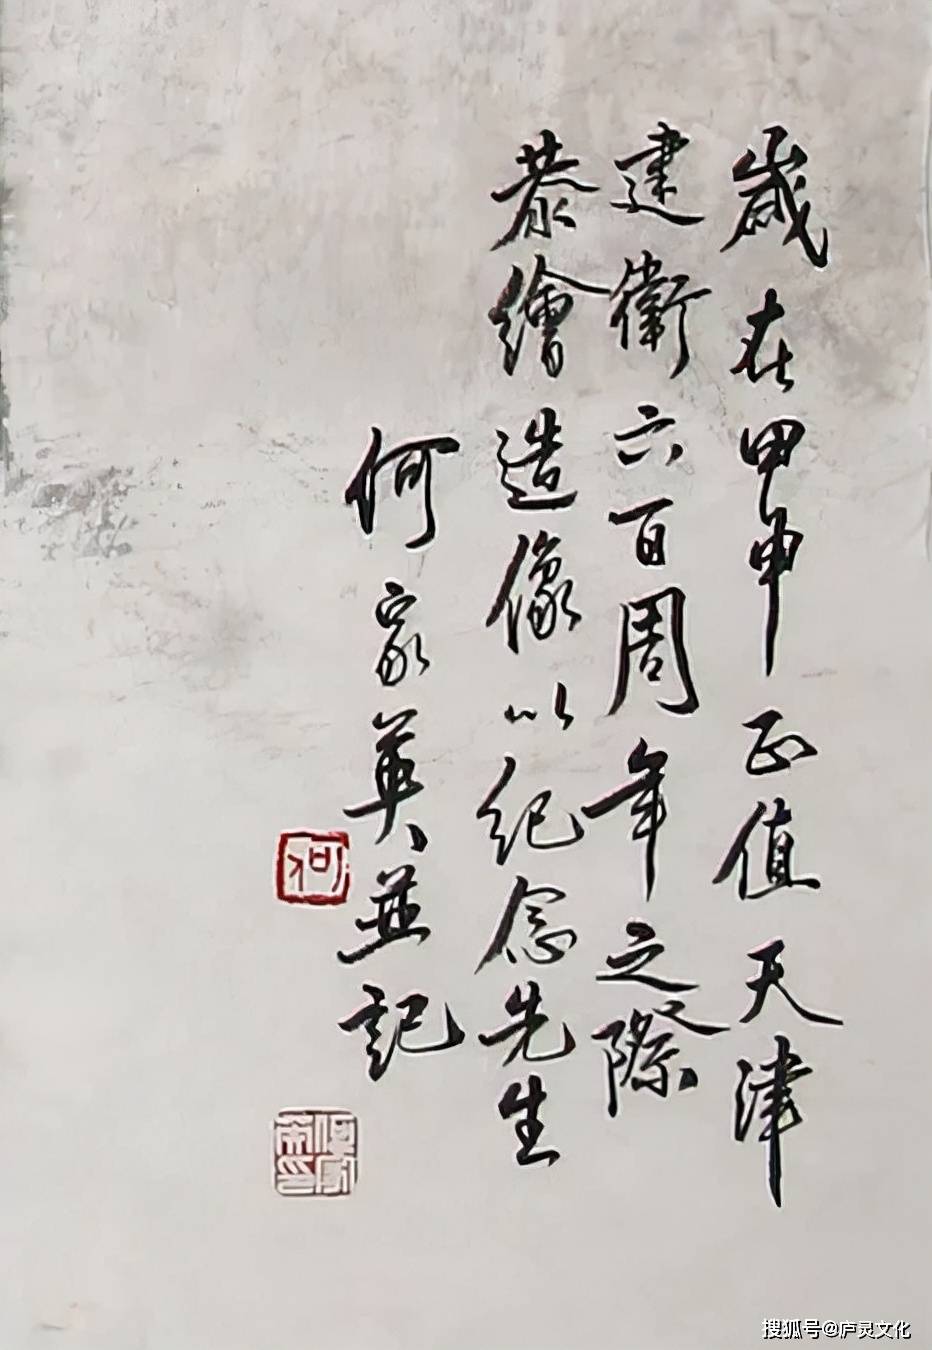 歲在甲申正值天津
建衛六百周年之際
恭繪造像以紀念先生
何家英並記
何
何家英印
搜狐号@庐灵文化